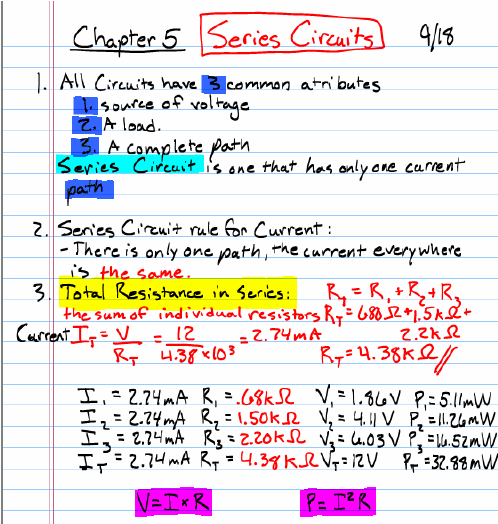 Chapter 5 Series Circuits 9/18
1. All Circuits have 3 common atributes
1. source of voltage
2. A load.
3. A complete path
Series Circuit is one that has only one current
path
2. Series Circuit rule for Current:
- There is only one path, the current everywhere
is the same.
3. Total Resistance in Series: R_T = R₁ + R₂ + R₃
the sum of individual resistors R_T = 680 Ω + 1.5k Ω +
2.2k Ω
Current I_T = V/R_T = 12/4.38×10³ = 2.74mA R_T = 4.38k Ω //
I₁ = 2.74mA R₁ = .68k Ω V₁ = 1.86V P₁ = 5.11mW
I₂ = 2.74mA R₂ = 1.50k Ω V₂ = 4.11 V P₂ = 11.26mW
I₃ = 2.74mA R₃ = 2.20k Ω V₃ = 6.03 V P₃ = 16.52mW
I_T = 2.74mA R_T = 4.38k Ω V_T = 12V P_T = 32.88mW
V = I × R P = I²R